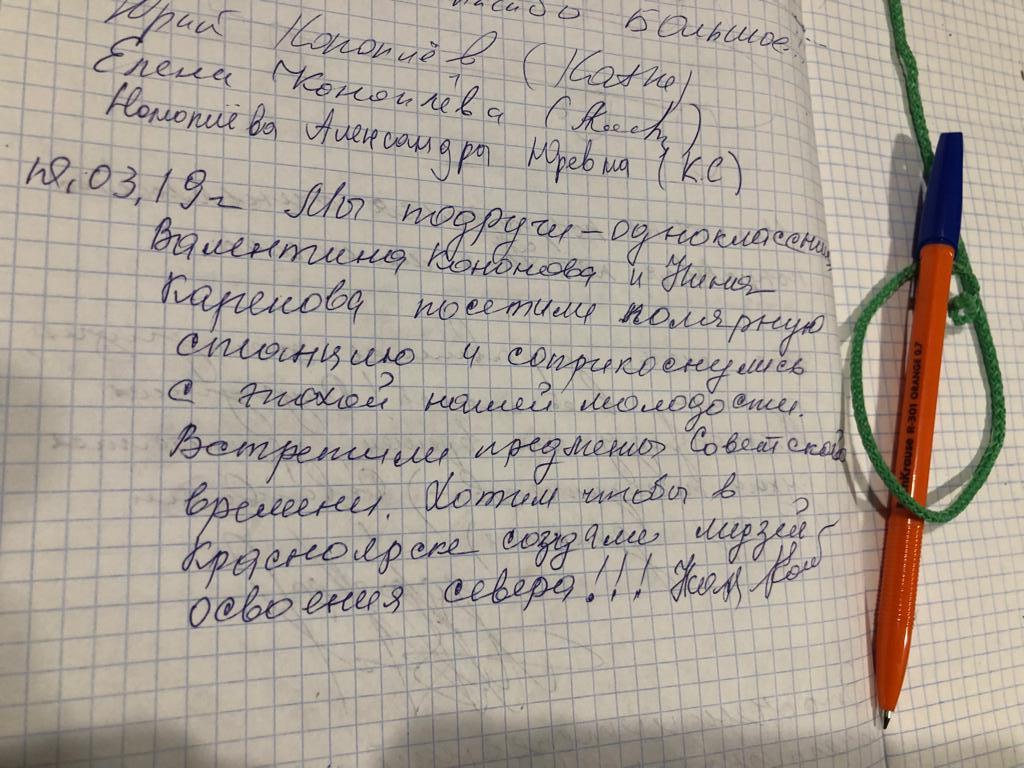 Большое...
Юрий Коноплёв (
Елена Коноплёва (
Коноплёва Александра Юревна (К.С)
03.19г Мы подруги-одноклассниц
Валентина Кононова и Нина
Каренова посетили полярную
станцию и соприкоснулись
с эпохой нашей молодости.
Встретили предметы Советской
времени. Хотим чтобы в
Красноярске создали музей
освоения севера!!!
Krause R-301 ORANGE 0.7